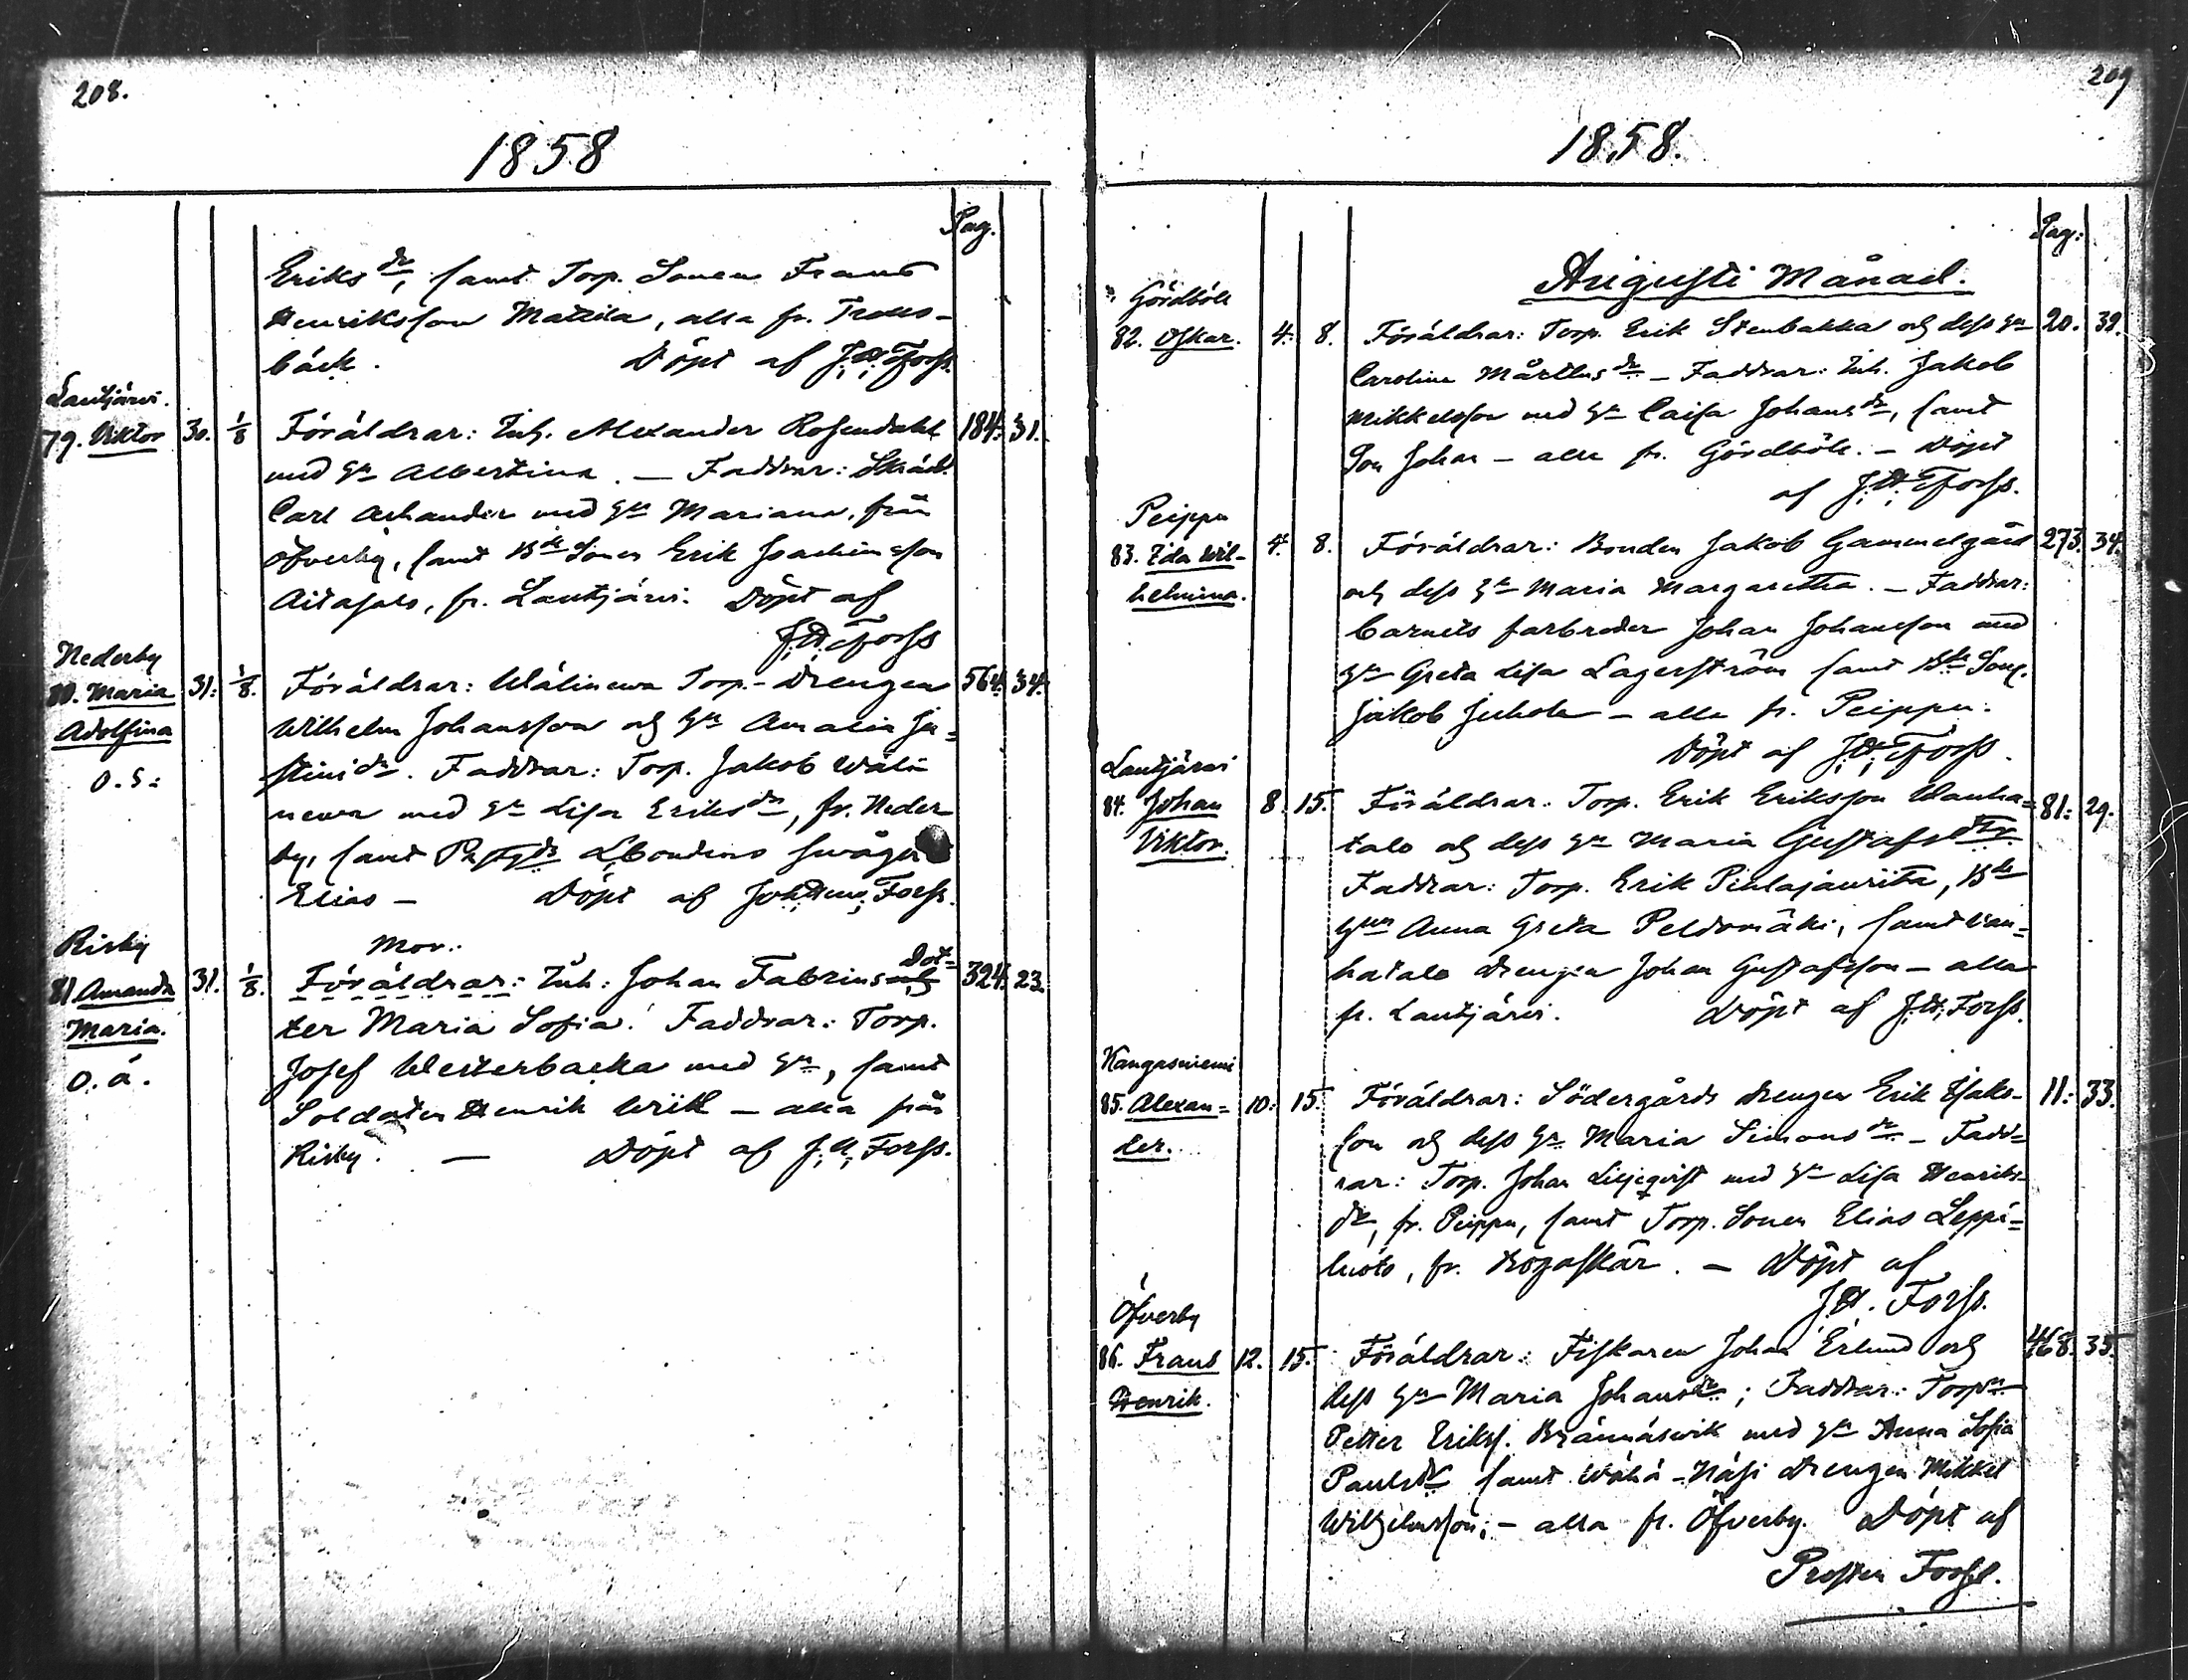 208.
1858
Pag.
Eriks dr, samt Torp. Sonen Frans
Henriksson Mattila, alla fr. Trolls-
bäck. Döpt af J.H. Forss.
Lautjärvi.
79. Viktor 30. 1/8 Föräldrar: Inh. Alexander Rosendahl 184. 31.
med hu Albertina. — Faddrar: Skräd.
Carl Arhander med hu Mariana, från
Öfverby, samt Bde Sonen Erik Joachimsson
Aitasalo, fr. Lautjärvi. Döpt af
J.H. Forss
Nederby
80. Maria 31. 1/8. Föräldrar: Wälinewa Torp.-Drengen 564. 34.
Adolfina Wilhelm Johansson och hu Amalia Ju-
o.s: stinidr. Faddrar: Torp. Jakob Wäli
newa med hu Lisa Eriksdr, fr. Neder
by, samt Prstgds Lbondens swåger
Elias — Döpt af Joh. Henr. Forss.
Risby Mor.
81 Amanda 31. 1/8. Föräldrar: Inh: Johan Fabrins och Dot= 324. 23.
Maria. ter Maria Sofia. Faddrar: Torp.
o.ä. Josef Westerbacka med hu, samt
Soldaten Henrik Wrikl — alla från
Risby. — Döpt af J.H. Forss.
209
1858.
Pag:
Augusti Månad.
Gårdböle
82. Oskar. 4. 8. Föräldrar: Torp. Erik Stenbakka och dess hu 20. 39.
Carolina Mårtens dr — Faddrar: Inh. Jakob
Mikkelsson med hu Caisa Johans dr, samt
Son Johan — alla fr. Gårdböle. — Döpt
af J.H. Forss.
Peippu
83. Ida Wil- 4. 8. Föräldrar: Bonden Jakob Gammelgård 273. 34.
helmina. och dess hu Maria Margaretha. — Faddrar:
barnets farbroder Johan Johansson med
hu Greta Lisa Lagerström samt Bde Son.
Jakob Juhola — alla fr. Peippu.
Döpt af J.H. Forss.
Lautjärvi
84. Johan 8. 15. Föräldrar: Torp. Erik Eriksson Wanha= 81. 29.
Viktor. talo och dess hu Maria Gustafsdtr.
Faddrar: Torp. Erik Pihlajawiita, Bde
hun Anna Greta Peldomäki, samt Wan=
hatalo drengen Johan Gustafsson — alla
fr. Lautjärvi. Döpt af J.H. Forss.
Kangasniemi
85. Alexan= 10. 15. Föräldrar: Södergårds drengen Erik Isaks- 11. 33.
der. son och dess hu Maria Simonsdr — Fadd=
rar: Torp. Johan Liljeqvist med hu Lisa Henriks-
dr, fr. Peippu, samt Torp. Sonen Elias Leppi=
luoto, fr. Kogaskär. — Döpt af
J.H. Forss.
Öfverby
86. Frans 12. 15. Föräldrar: Fiskaren Johan Erlund och 468. 35.
Henrik. dess hu Maria Johansdr; Faddrar: Torpn
Petter Eriks. Brännäsvik med hu Anna Sofia
Paulsdr samt Wähä-Näsi drengen Mikkel
Wilhelmsson; — alla fr. Öfverby. Döpt af
Prosten Forss.